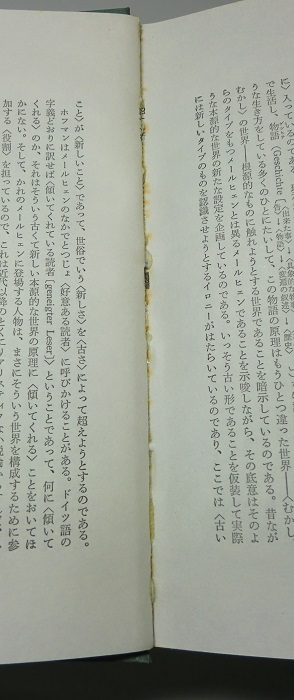 に〉入っているのである。
で生活し、物語〈Geschichte〉
うな生き方をしている多くのひとにたいして、この物語の原理はもうひとつ違った世界――〈むかし
むかし〉の世界――根源的なものに触れようとする世界であることを暗示しているのである。昔なが
らのタイプをもつメールヒェンとは異るメールヒェンであることを示唆しながら、その底意はそのよ
うな本源的な世界の新たな設定を企画しているのである。いっそう古い形であることを仮装して実際
には新しいタイプのものを認識させようとするイロニーがはたらいているのであり、ここでは〈古い
こと〉が〈新しいこと〉であって、世俗でいう〈新しさ〉を〈古さ〉によって超えようとするのである。
ホフマンはメールヒェンのなかでとつじょ〈好意ある読者〉に呼びかけることがある。ドイツ語の
字義どおりに訳せば〈傾いてくれている読者 [geneigter Leser]〉ということであって、何に〈傾いて
くれる〉のか、それはそういう古くて新しい本源的な世界の原理に〈傾いてくれる〉ことをおいてほ
かにない。そして、かれのメールヒェンに登場する人物は、まさにそういう世界を構成するために参
加する〈役割〉を担っているので、これは近代以降の